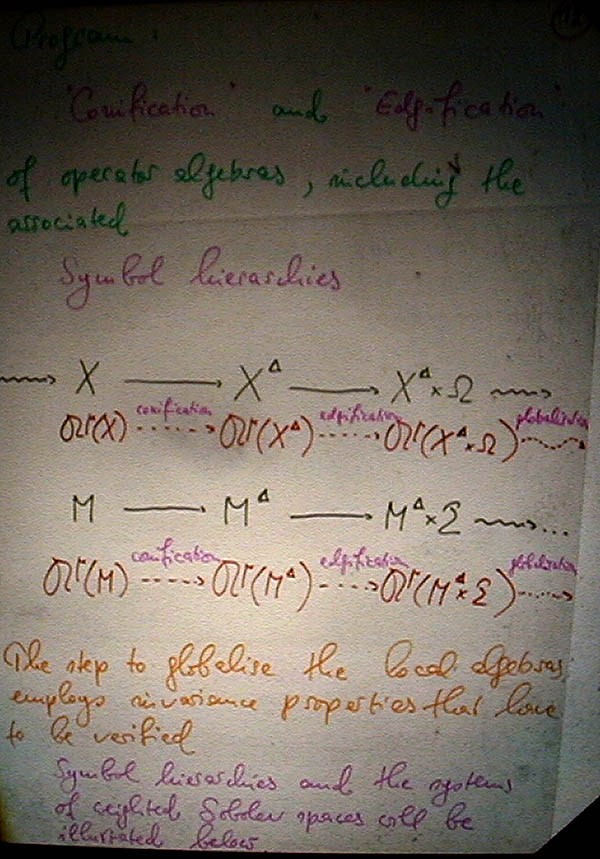 Program:
"Conification" and "Edgification"
of operator algebras, including the
associated
Symbol hierarchies
X → X^Δ → X^Δ × Ω
conification edgification globalisation
(X) (X^Δ) (X^Δ × Ω)
M → M^Δ → M^Δ × Σ ...
conification edgification globalisation
(M) (M^Δ) (M^Δ × Σ)
The step to globalise the local algebras
employs invariance properties that have
to be verified
Symbol hierarchies and the systems
of weighted Sobolev spaces will be
illustrated below